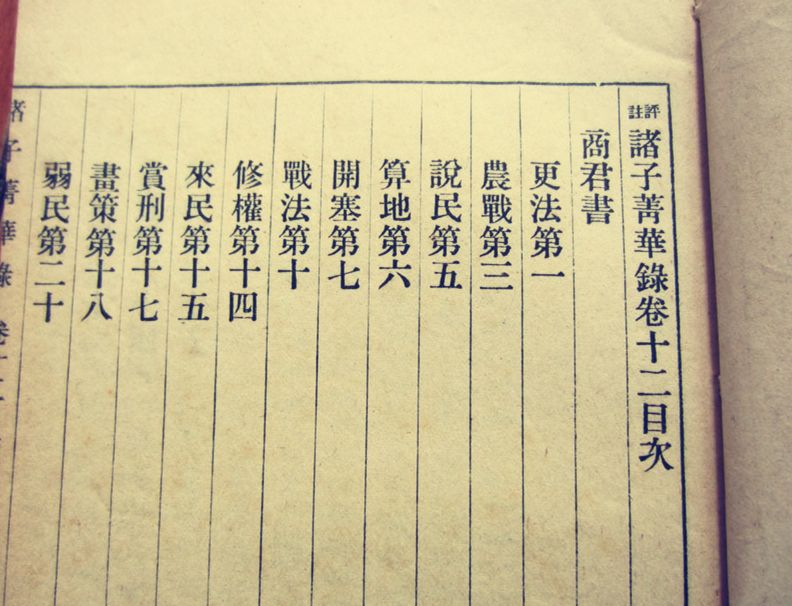 評註諸子菁華錄卷十二目次
商君書
更法第一
農戰第三
說民第五
算地第六
開塞第七
戰法第十
修權第十四
來民第十五
賞刑第十七
畫策第十八
弱民第二十
諸子菁華錄卷十二